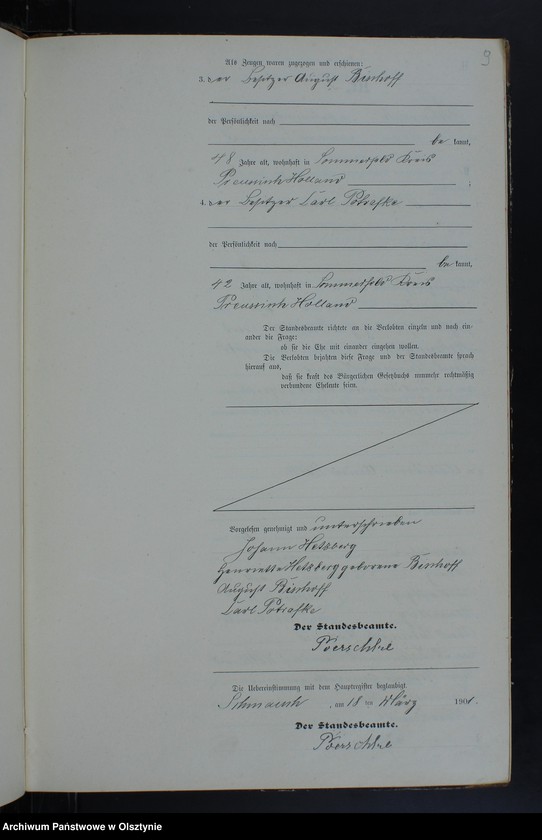 9
Als Zeugen waren zugezogen und erschienen:
3. der Besitzer August Bischoff
der Persönlichkeit nach
be kannt,
48 Jahre alt, wohnhaft in Sommerfeld Kreis
Preussisch Holland ;
4. der Besitzer Carl Potrafke
der Persönlichkeit nach
be kannt,
42 Jahre alt, wohnhaft in Sommerfeld Kreis
Preussisch Holland
Der Standesbeamte richtete an die Verlobten einzeln und nach ein-
ander die Frage:
ob sie die Ehe mit einander eingehen wollen.
Die Verlobten bejahten diese Frage und der Standesbeamte sprach
hierauf aus,
daß sie kraft des Bürgerlichen Gesetzbuchs nunmehr rechtmäßig
verbundene Eheleute seien.
Vorgelesen genehmigt und unterschrieben
Johann Hetzberg
Henriette Hetzberg geborene Bischoff
August Bischoff
Carl Potrafke
Der Standesbeamte.
Poerschke
Die Uebereinstimmung mit dem Hauptregister beglaubigt
Schmauch, am 18 ten März 1901.
Der Standesbeamte.
Poerschke
Archiwum Państwowe w Olsztynie